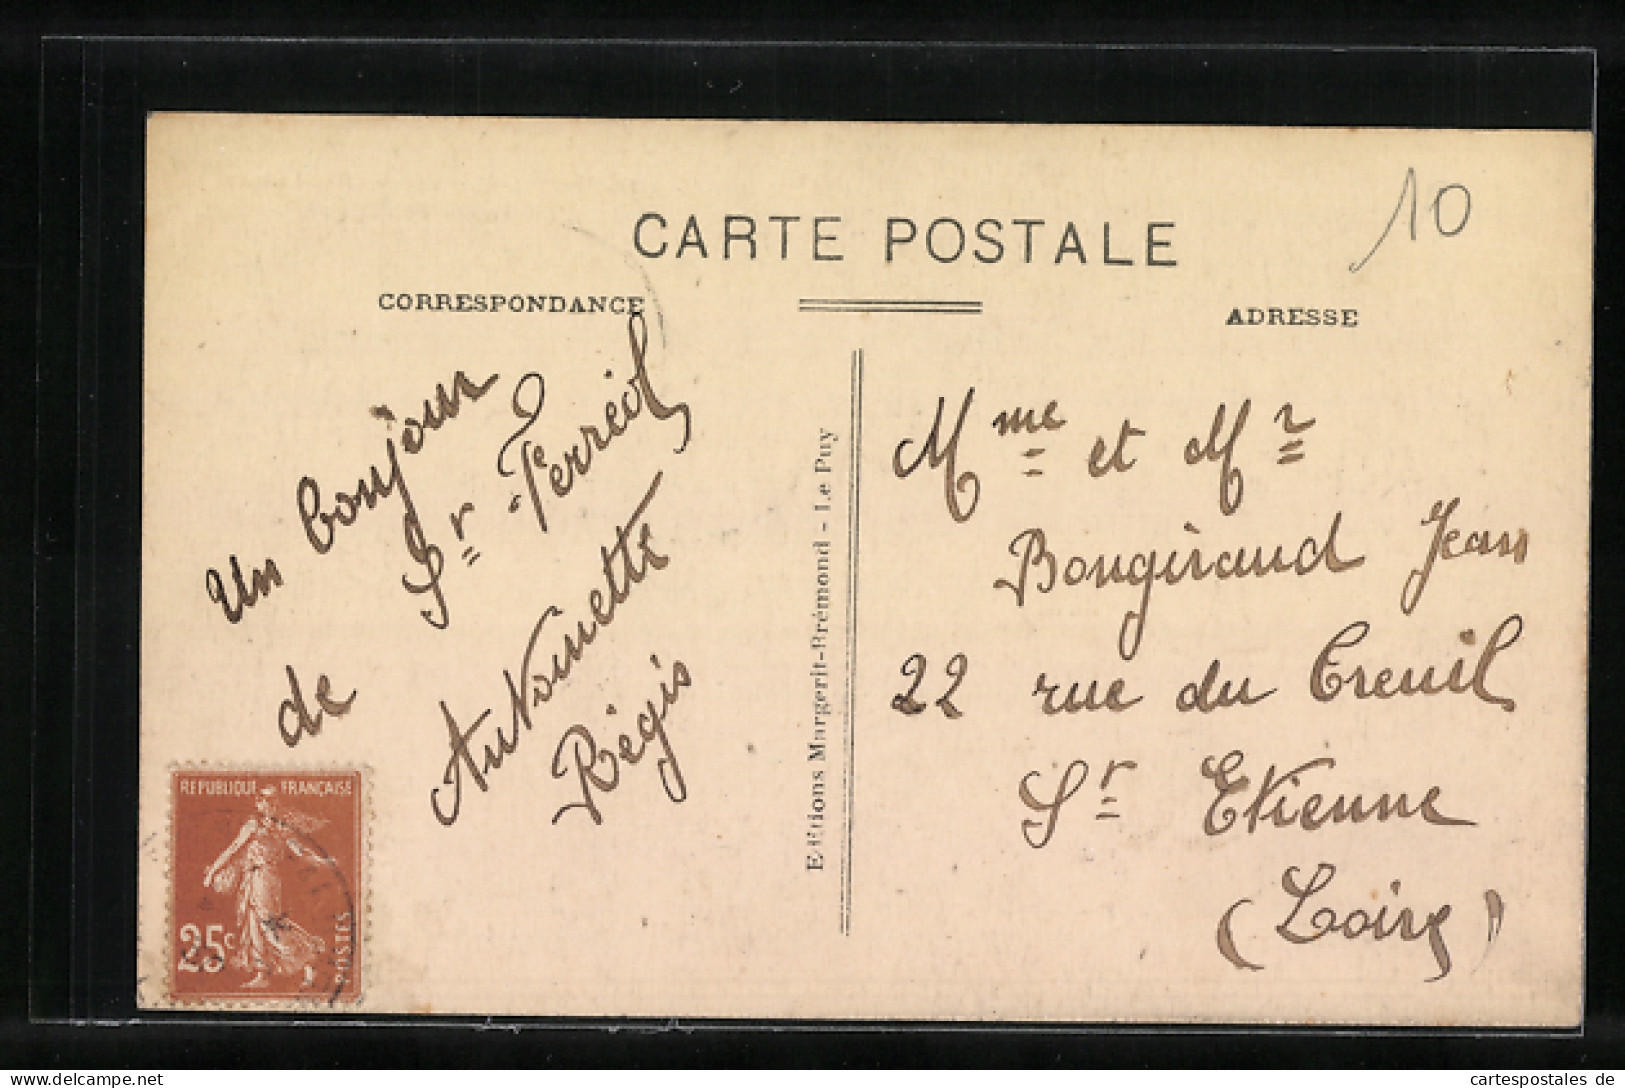 10
CARTE POSTALE
CORRESPONDANCE
ADRESSE
Un bonjour
de Sr Ferréol
Antoinette
Régis
Editions Margerit-Brémond - Le Puy
Mme et Mr
Bongiraud Jean
22 rue du Treuil
St Etienne
(Loire)
REPUBLIQUE FRANÇAISE
25c
POSTES
delcampe.net
cartespostales de